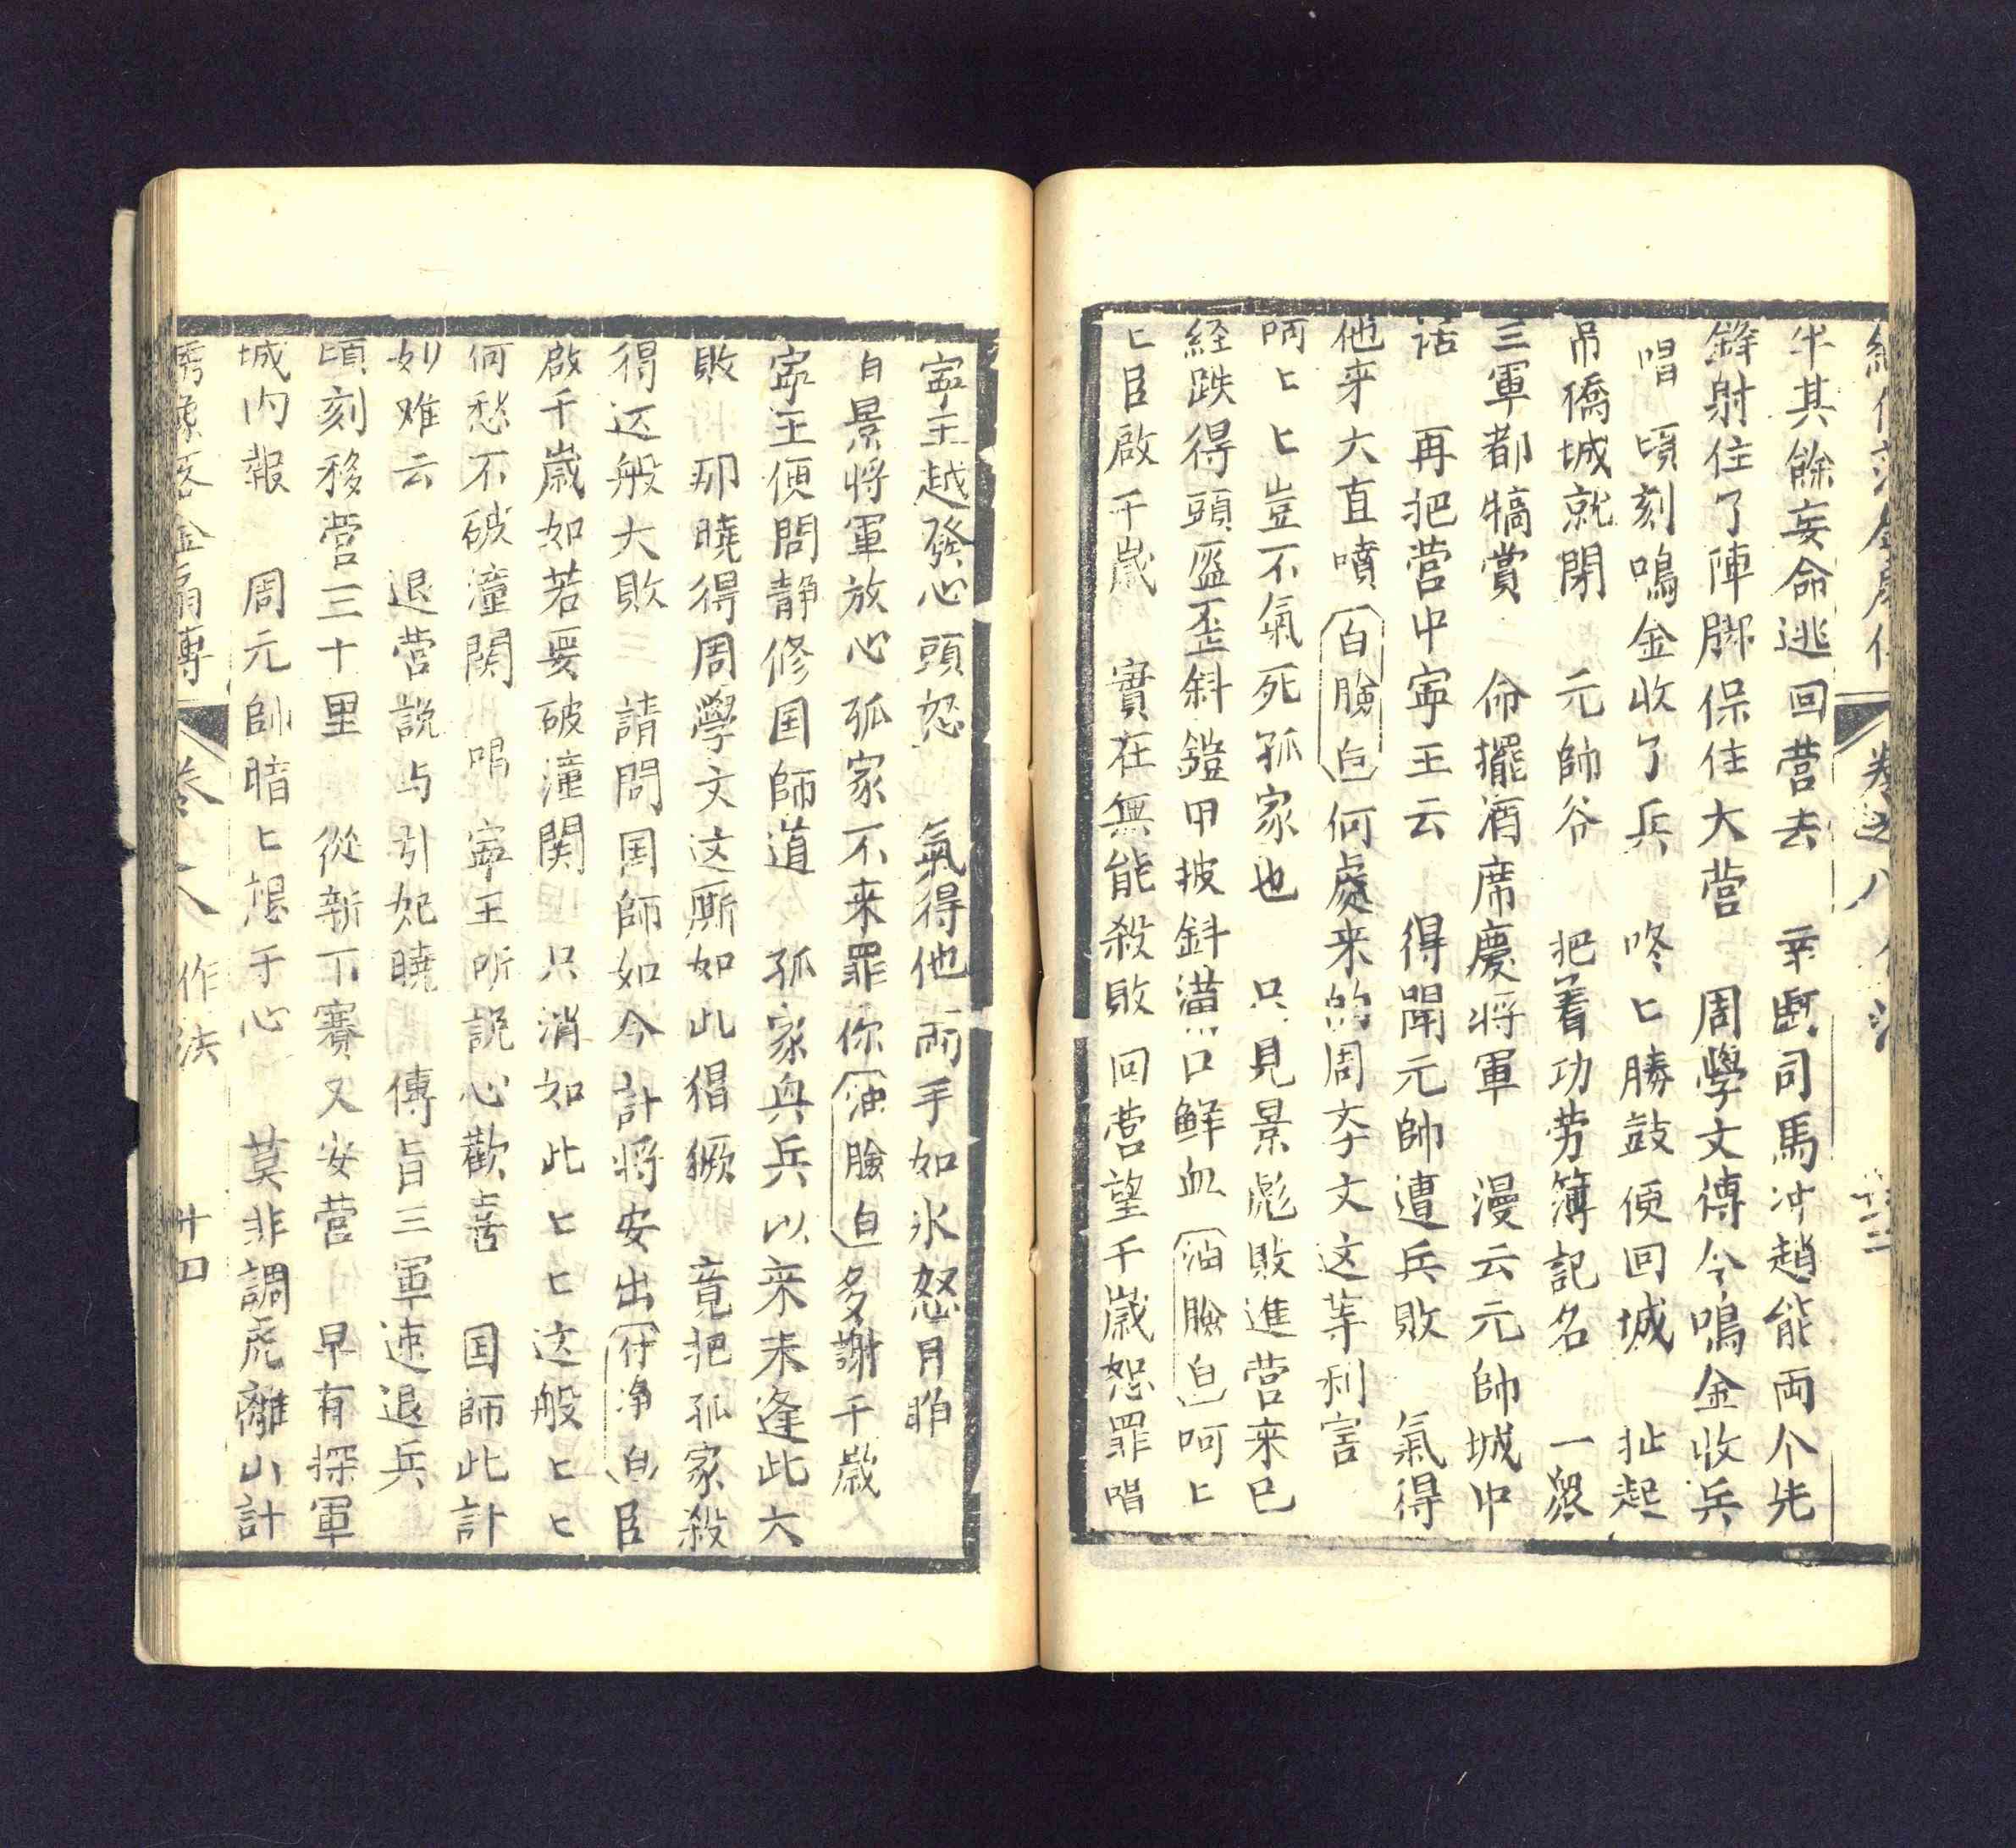 卷之八
半其餘妄命逃回营去　幸虧司馬冲趙能両个先
鋒射住了陣脚保住大营　周學文傳令鳴金收兵
唱　頃刻鳴金收了兵　咚匕勝鼓便回城　扯起
吊僑城就閉　元帥谷　把着功劳簿記名　一衆
三軍都犒賞　命擺酒席慶将軍　漫云元帥城中
話　再把营中寕王云　得聞元帥遭兵敗　氣得
他牙大直噴（白臉白）何處来的周孝文这等利害
呵匕匕豈不氣死孤家也　只見景彪敗進营来已
経跌得頭盔歪斜鎧甲披斜满口鮮血（油臉白）呵匕
匕臣啟千嵗　實在無能殺敗回营望千嵗恕罪唱
寕王越發心頭怒　氣得他両手如氷怒目睁
白景将軍放心孤家不来罪你（油臉白）多謝千嵗
寕王便問静修囯師道　孤家興兵以来未逢此大
敗　那曉得周學文这厮如此猖獗　竟把孤家殺
得这般大敗　請問囯師如今計将安出（付净白）臣
啟千嵗如若要破潼関　只消如此匕匕这般匕匕
何愁不破潼関　唱　寕王所説心歡喜　囯師此計
妙难云　退营説与引妃曉　傳旨三軍速退兵
頃刻移营三十里　從新下寨又安营　早有探軍
城内報　周元帥暗匕想于心　莫非調虎離山計
綉像落金扇傳　卷之八　作法　十四